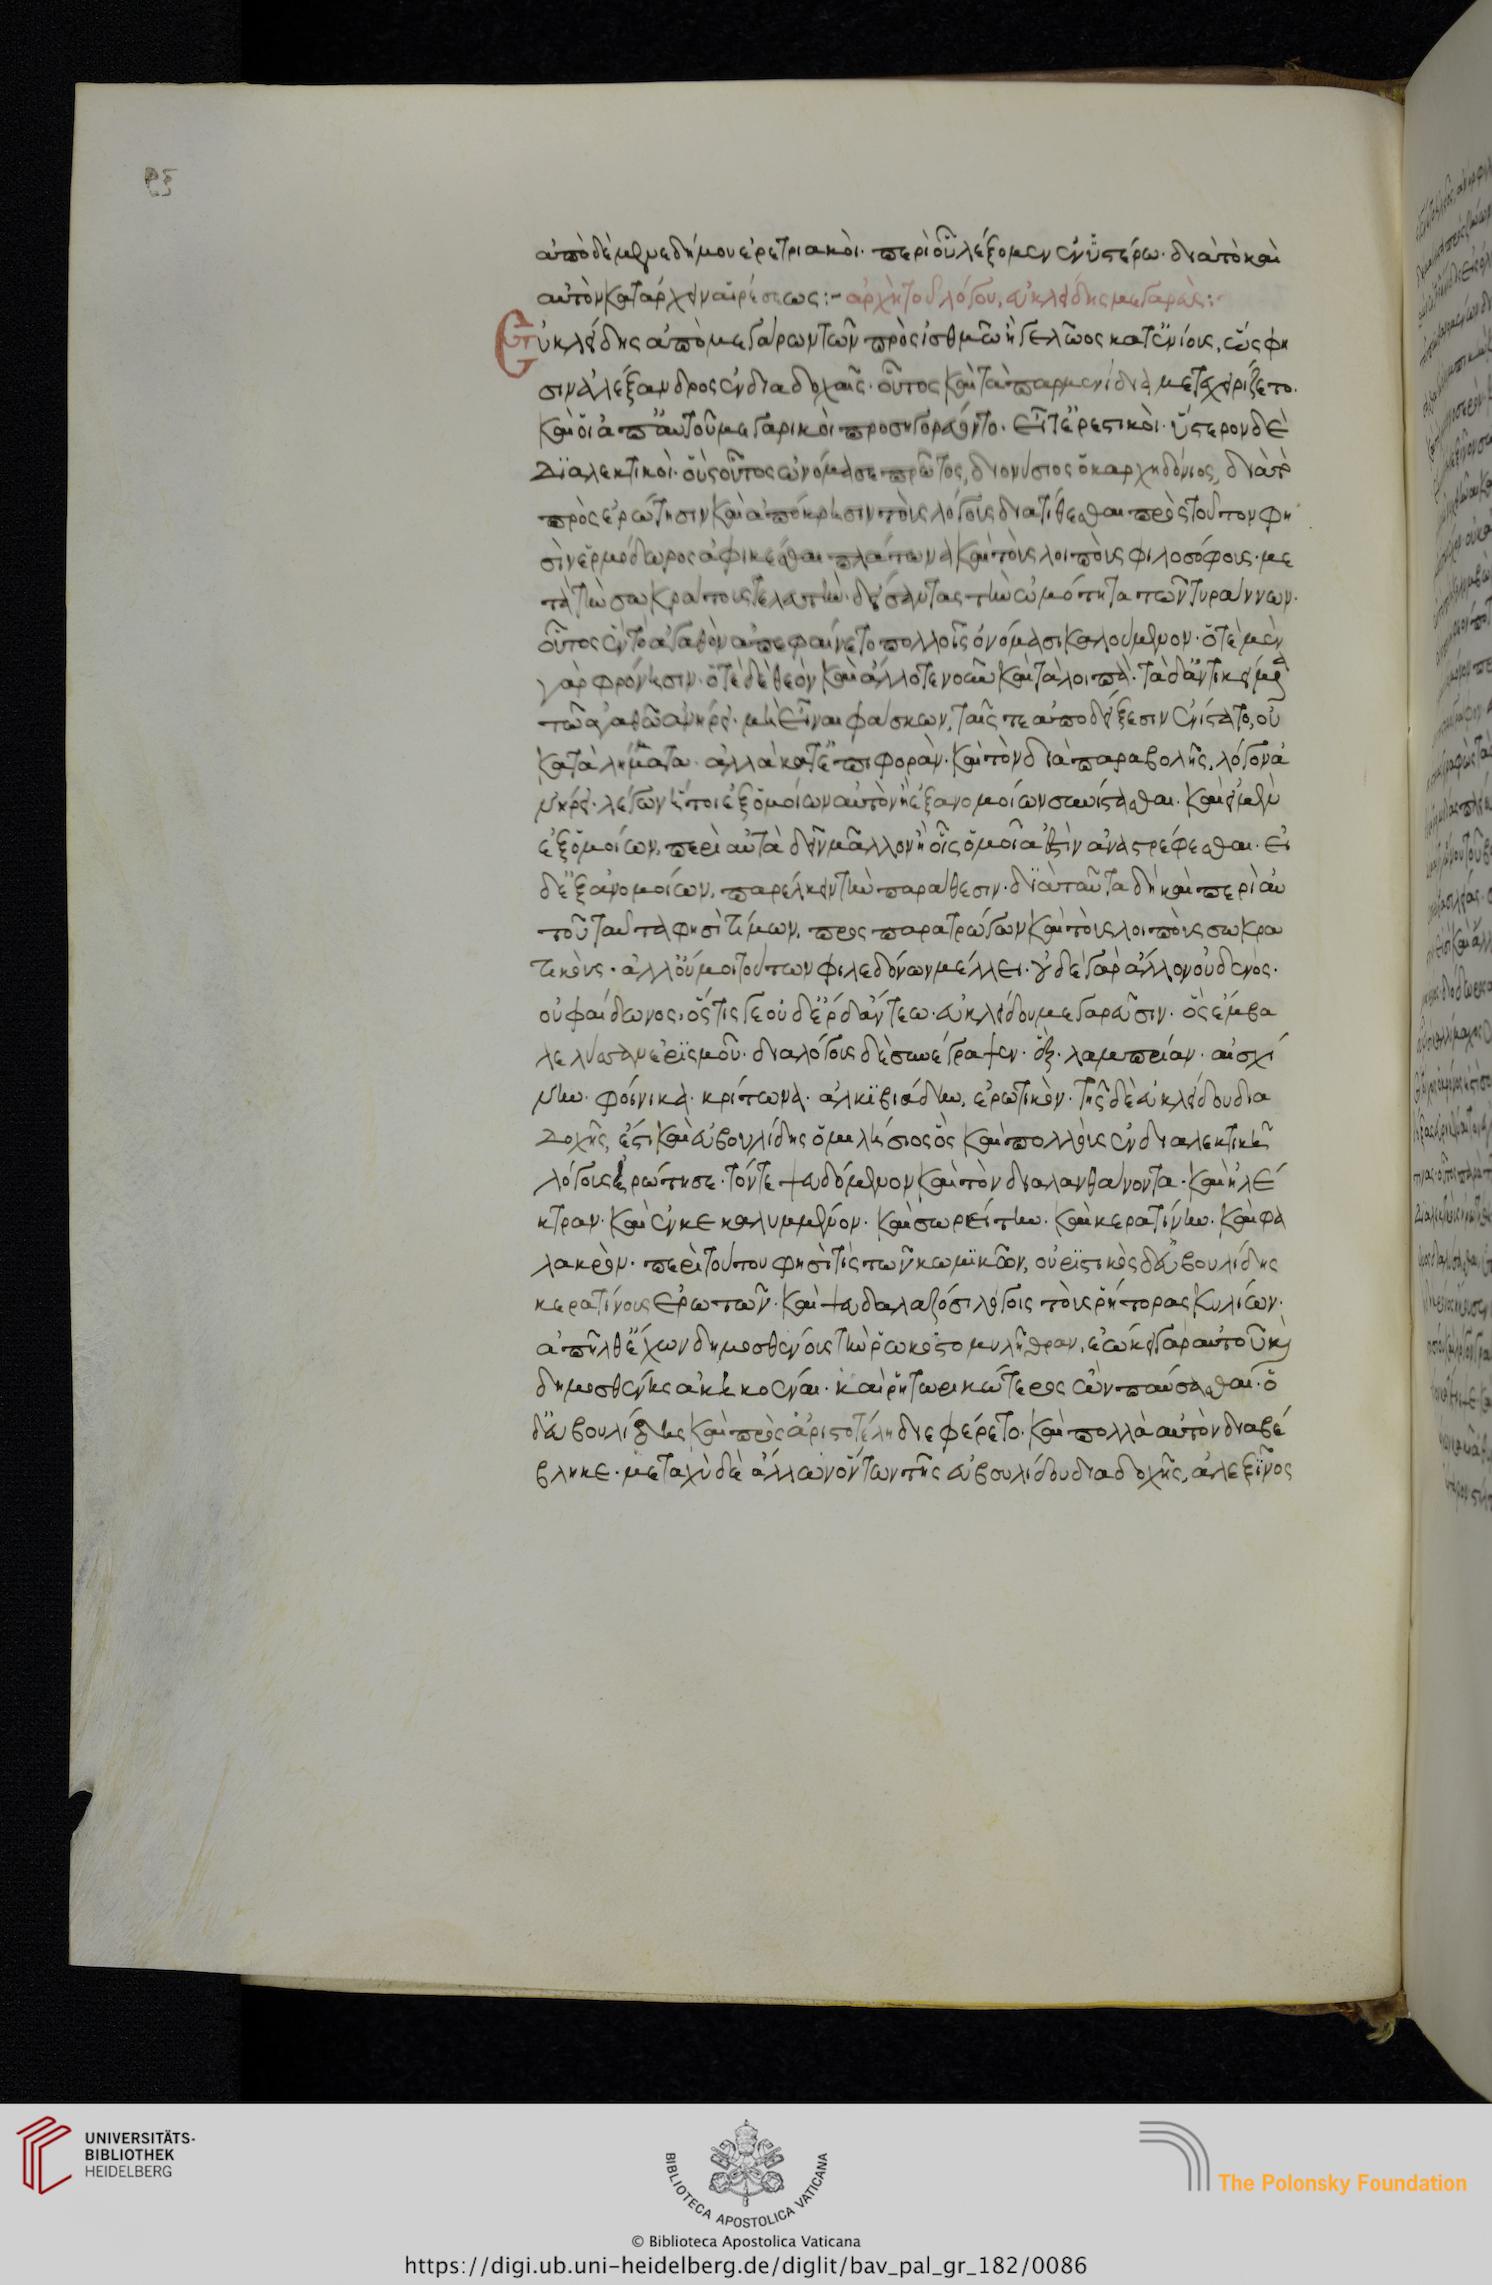 ἀπὸ δὲ μενεδήμου ἐρετριακοὶ· περὶ οὗ λέξομεν ἐν ὑστέρω· διὰ τὸ καὶ
αὐτὸν κατάρχειν αἱρέσεως :- ἀρχὴ τοῦ λόγου, εὐκλείδης μεγαρεὺς :-
Εὐκλείδης ἀπὸ μεγάρων τῶν πρὸς ἰσθμῶ ἢ γελῶος κατ ἐνίους, ὥς φη
σιν ἀλέξανδρος ἐν διαδοχαῖς· οὗτος καὶ τὰ παρμενίδεια μεταχειρίζετο·
καὶ οἱ ἀπ αὐτοῦ μεγαρικοὶ προσηγορεύοντο· εἶτ ἐρεστικοὶ· ὕστερον δὲ
διαλεκτικοὶ· οὓς οὕτος ὠνόμασε πρῶτος, διονύσιος ὁ καρχηδόνιος, διὰ τὸ
πρὸς ἐρώτησιν καὶ ἀπόκρισιν τοὺς λόγους διατίθεσθαι πρὸς τοῦτον φη
σὶν ἑρμόδωρος ἀφικέσθαι πλάτωνα καὶ τοὺς λοιποὺς φιλοσόφους· με
τὰ τὴν σωκράτους τελευτὴν· δείσαντας τὴν ὠμότητα τῶν τυράννων·
οὗτος ἓν τὸ ἀγαθὸν ἀπεφαίνετο πολλοῖς ὀνόμασι καλούμενον· ὁτὲ μὲν
γὰρ φρόνησιν· ὁτὲ δὲ θεὸν καὶ ἄλλοτε νοῦν καὶ τὰ λοιπὰ· τὰ δ ἀντικείμενα
τῶ ἀγαθῶ ἀνήρει· μὴ εἶναι φάσκων, ταῖς τε ἀποδείξεσιν ἐνίστατο, οὐ
κατὰ λήμματα ἀλλὰ κατ ἐπιφορὰν· καὶ τὸν διὰ παραβολῆς, λόγον ἀ
νήρει· λέγων ἤτοι ἐξ ὁμοίων αὐτὸν ἢ ἐξ ανομοίων συνίστασθαι· καὶ εἰ μὲν
ἐξ ὁμοίων, περὶ αὐτὰ δεῖν μᾶλλον ἢ οἷς ὅμοιά ἐστὶν ἀναστρέφεσθαι· εἰ
δ ἐξ ἀνομοίων, παρέλκειν τὴν παράθεσιν· διὰ ταῦτα δὴ καὶ περὶ αὐ
τοῦ ταῦτα φησὶ τίμων, προς παρατρώγων καὶ τοὺς λοιποὺς σωκρα
τικοὺς· ἀλλ οὔ μοι τούτων φλεδόνων μέλλει· οὐδὲ γὰρ ἄλλον οὐδενὸς·
οὐ φαίδωνος, ὅστις γε οὐδ ἐρδάντεω· εὐκλείδου μεγαρεῦσιν· ὃς ἔμβα
λε λύσσαν ἐρισμοῦ· διαλόγους δὲ συνέγραψεν· ἓξ· λαμπρίαν· αἰσχί
νην· φοίνικα· κρίτωνα· ἀλκιβιάδην, ἐρωτικὸν· τῆς δὲ εὐκλείδου δια
δοχῆς, ἐστὶ καὶ εὐβουλίδης ὁ μιλήσιος ὃς καὶ πολλοὺς ἐν διαλεκτικῆ
λόγους ἠρώτησε· τόν τε ψευδόμενον καὶ τὸν διαλανθάνοντα· καὶ ἠλέ
κτραν· καὶ ἐνκεκαλυμμένον· καὶ σωρείτην· καὶ κερατίνην· καὶ φα
λακρὸν· περὶ τούτου φησὶ τὶς τῶν κωμικῶν, οὑριστικὸς δ εὐβουλίδης
κερατίνους ἐρωτῶν· καὶ ψευδαλαζόσι λόγοις τοὺς ῥήτορας κυλίων·
ἀπῆλθ ἔχων δημοσθένους τὴν ῥωκοστομυλήθραν, ἐώκει γὰρ αὐτοῦ καὶ
δημοσθένης ἀκηκοέναι· καὶ ῥητωρικώτερος ὢν παύσασθαι· ὁ
δ εὐβουλίδης καὶ πρὸς ἀριστοτέλη διεφέρετο· καὶ πολλὰ αὐτὸν διαβέ
βληκε· μεταξὺ δὲ ἄλλων ὄντων τῆς εὐβουλίδου διαδοχῆς, ἀλεξῖνος
UNIVERSITÄTS-
BIBLIOTHEK
HEIDELBERG
BIBLIOTECA APOSTOLICA VATICANA
The Polonsky Foundation
© Biblioteca Apostolica Vaticana
https://digi.ub.uni-heidelberg.de/diglit/bav_pal_gr_182/0086